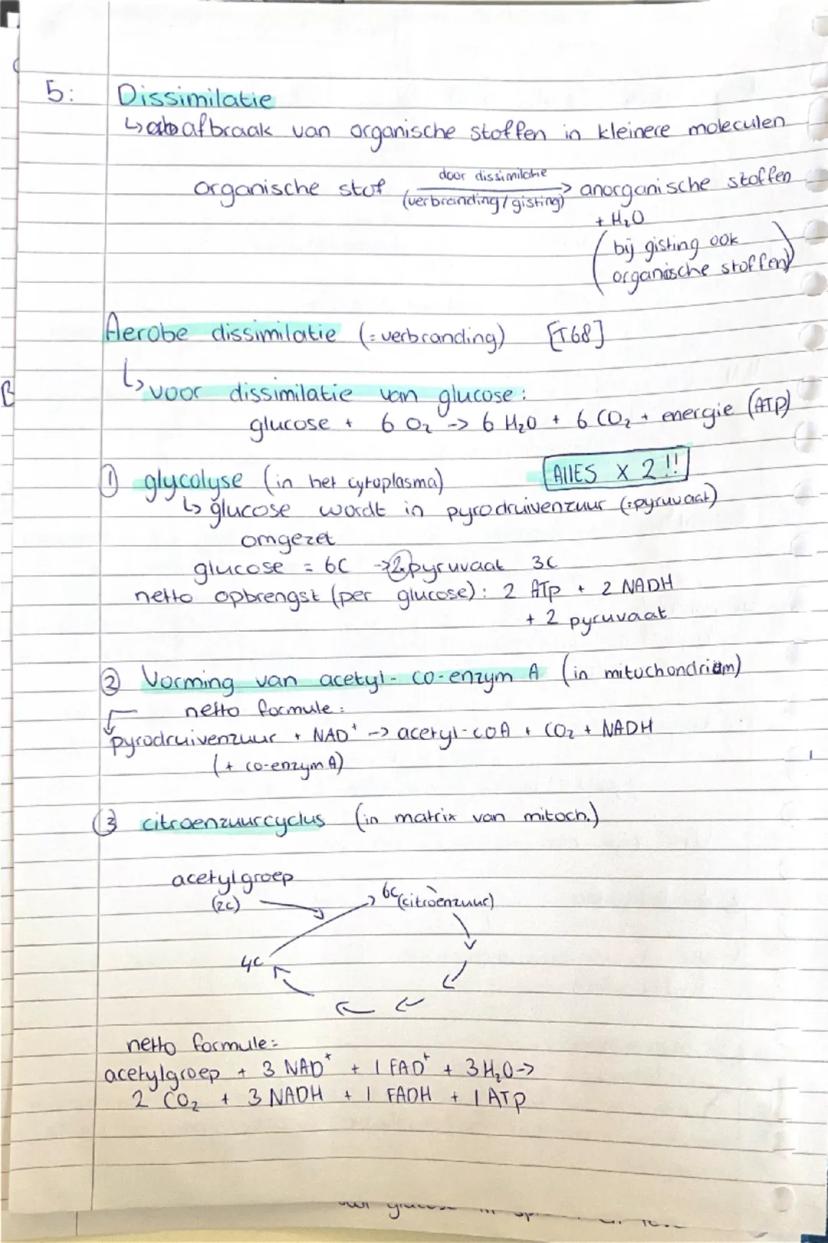 5: Dissimilatie
↳ afbraak van organische stoffen in kleinere moleculen
door dissimilatie
organische stof → anorganische stoffen
(verbranding/gisting)
+ H₂O
(bij gisting ook
organische stoffen)
Aerobe dissimilatie (=verbranding) [T68]
B
↳ voor dissimilatie van glucose:
glucose + 6 O₂ -> 6 H₂O + 6 CO₂ + energie (ATP)
① glycolyse (in het cytoplasma) AllES x 2!!
↳ glucose wordt in pyrodruivenzuur (=pyruvaat)
omgezet
glucose = 6C -> 2 pyruvaat 3C
netto opbrengst (per glucose): 2 ATP + 2 NADH
+ 2 pyruvaat
② Vorming van acetyl-co-enzym A (in mitochondrium)
netto formule:
pyrodruivenzuur + NAD⁺ -> acetyl-coA + CO₂ + NADH
(+ co-enzym A)
③ citroenzuurcyclus (in matrix van mitoch.)
acetylgroep
(2C) 6C (citroenzuur)
4C
netto formule:
acetylgroep + 3 NAD⁺ + 1 FAD⁺ + 3 H₂O ->
2 CO₂ + 3 NADH + 1 FADH + 1 ATP